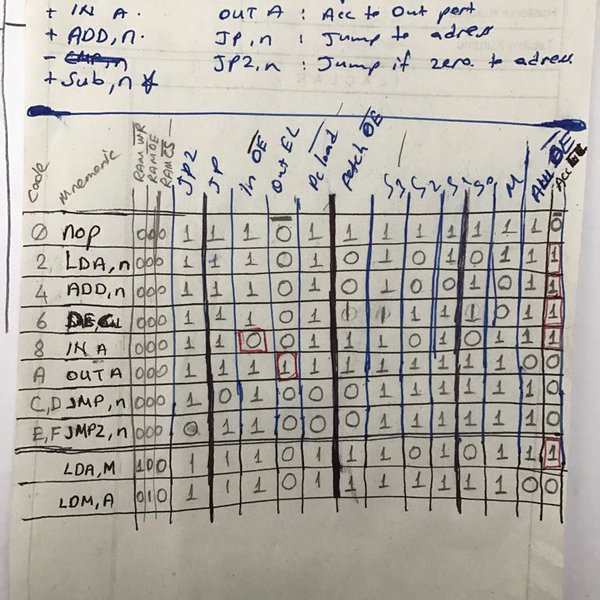 + IN A. OUT A : Acc to Out port
+ ADD,n. JP,n : Jump to adress
- CMP,n JP2,n : Jump if zero to adress
+ Sub,n
Code Mnemonic RAM WR RAM OE RAM CS JP2 JP In OE Out EL Pc load fetch OE S3 S2 S1 S0 M Add OE Acc
0 NOP 000 1 1 1 0 1 1 1 1 1 1 1 1 0
2 LDA,n 000 1 1 1 0 1 0 1 0 1 0 1 1 1
4 ADD,n 000 1 1 1 0 1 0 1 0 0 1 0 1 1
6 000 1 1 1 0 1 1 1 1 0 1 1
8 IN A 000 1 1 0 0 1 1 1 0 1 0 1 1 1
A OUT A 000 1 1 1 1 1 1 1 1 1 1 1 0 0
C,D JMP,n 000 1 0 1 0 0 0 1 1 1 1 1 1 0
E,F JMP2,n 000 0 1 1 0 0 0 1 1 1 1 1 1 0
LDA,M 100 1 1 1 0 1 1 1 0 1 0 1 1 1
LDM,A 010 1 1 1 0 1 1 1 1 1 1 1 0 0